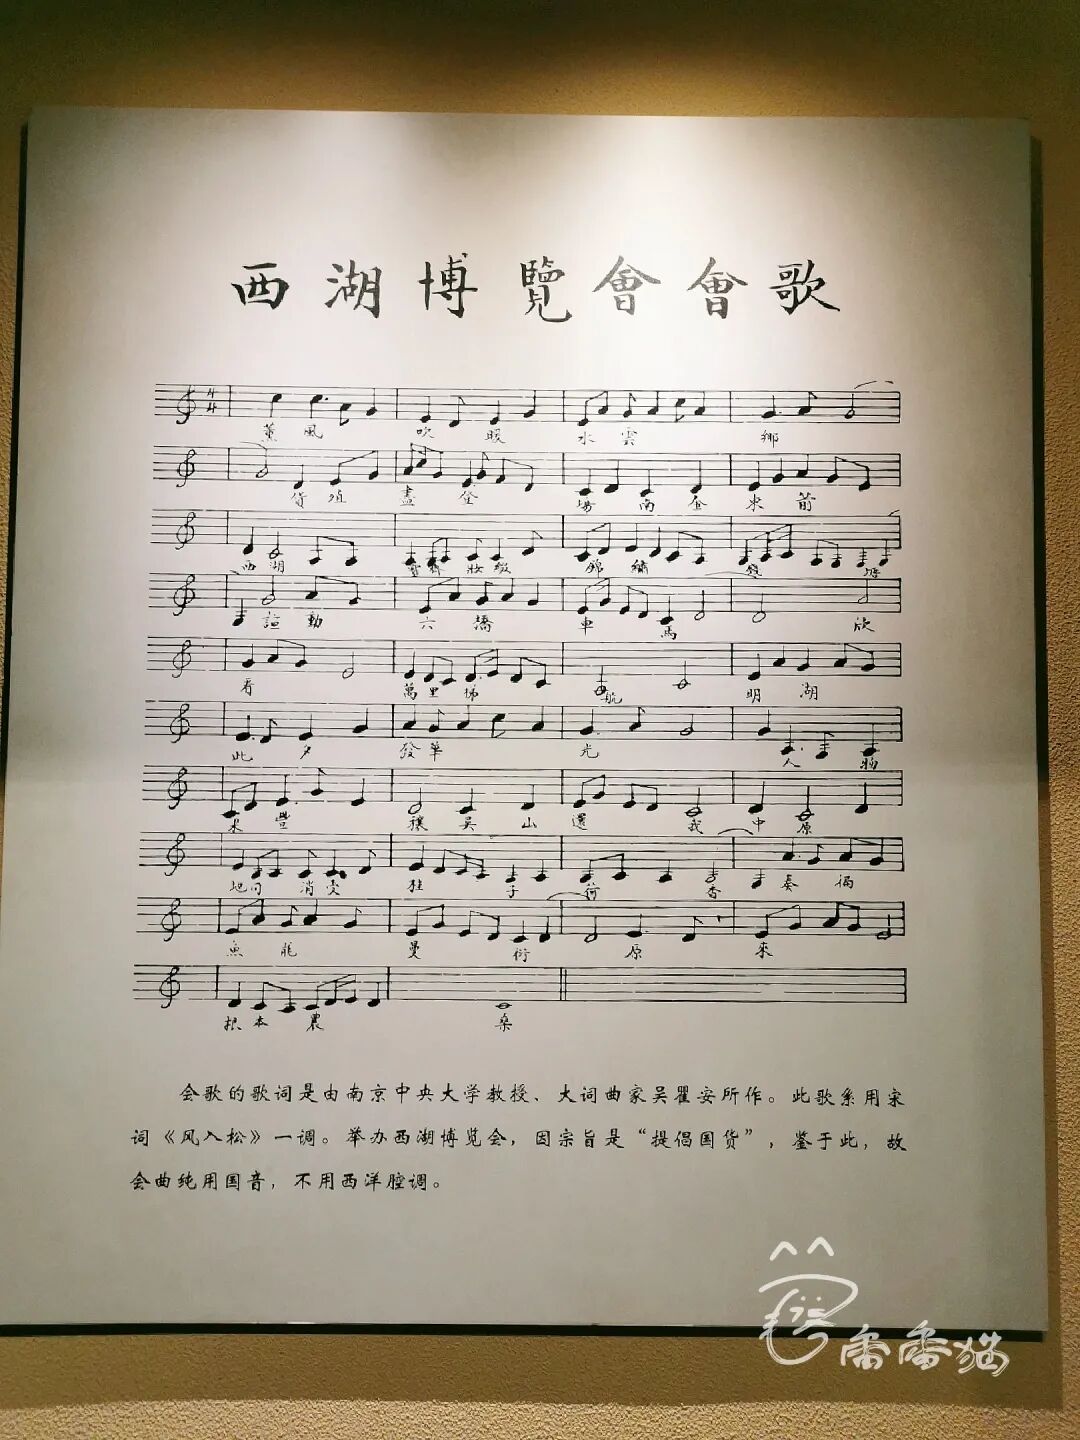 西湖博覽會會歌
4
4
薰風 吹暖 水雲 鄉
貨殖 盡 全場 南金 東箭
西湖 齊妝綴 錦繡
動 六橋 車馬 欣
看 萬里梯 航 明湖
此夕 發華 光 人物
豐 穰吳山 還我中原
地同消受 桂子 荷香 奏
魚龍 曼衍 原來
根本農 桑
会歌的歌词是由南京中央大学教授、大词曲家吴瞿安所作。此歌系用宋
词《风入松》一调。举办西湖博览会，因宗旨是“提倡国货”，鉴于此，故
会曲纯用国音，不用西洋腔调。
番番猫